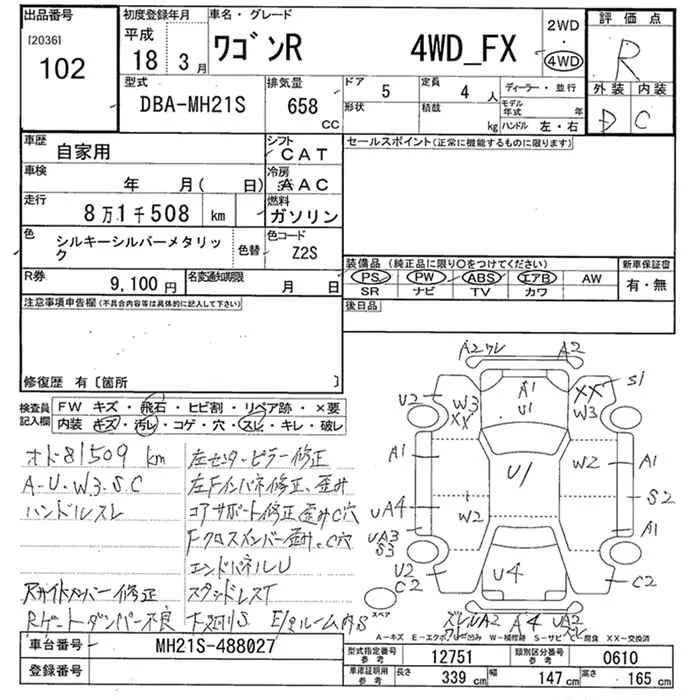 出品番号
[2036]
102
初度登録年月
平成
18 3月
車名・グレード
ワゴンR 4WD_FX
2WD
・
4WD
評価点
R
外装 内装
D C
型式
DBA-MH21S
排気量
658
CC
ドア
5
定員
4 人
形状
積載
kg
ディーラー・並行
モデル年式 年
ハンドル 左・右
車歴
自家用
シフト
CAT
車検
年 月( 日)
冷房
AAC
走行
8万1千508 km
燃料
ガソリン
色
シルキーシルバーメタリック
色替
色コード
Z2S
R券
9,100円
名変通知期限
月 日
セールスポイント(正常に機能するものに限ります)
装備品(純正品に限り〇をつけてください)
PS PW ABS エアB AW
SR ナビ TV カワ
新車保証書
有・無
後日品
注意事項申告欄(不具合内容等は具体的に記入して下さい)
修復歴 有〔箇所 〕
検査員記入欄
FW キズ・飛石・ヒビ割・リペア跡・×要
内装 キズ・汚レ・コゲ・穴・スレ・キレ・破レ
オドー81509 km
A-U・W3・S・C
ハンドルスレ
Rサイドメンバー修正
Rゲートダンパー不良
左センターピラー修正
左Fインパネ修正、歪み
コアサポート修正歪みC穴
Fクロスメンバー歪み、C穴
エンドパネルU
スタッドレスT
下廻りS E/gルーム内S
A2ワレ A2
A1
U1
XX S1
U2 W3 XX
W3
A1 U1 W2 A1
UA4 W2 S2
UA3 S3 A1
U2 C2 U4 C2
スペア
ズレUA2 A4 UA2 ズレ
A-キズ E-エクボ U-凹み W-補修跡 S-サビ C-腐食 XX-交換済
車台番号
MH21S-488027
登録番号
型式指定番号
参考
12751
類別区分番号
参考
0610
車庫証明用
参考
長さ 339 cm 幅 147 cm 高さ 165 cm